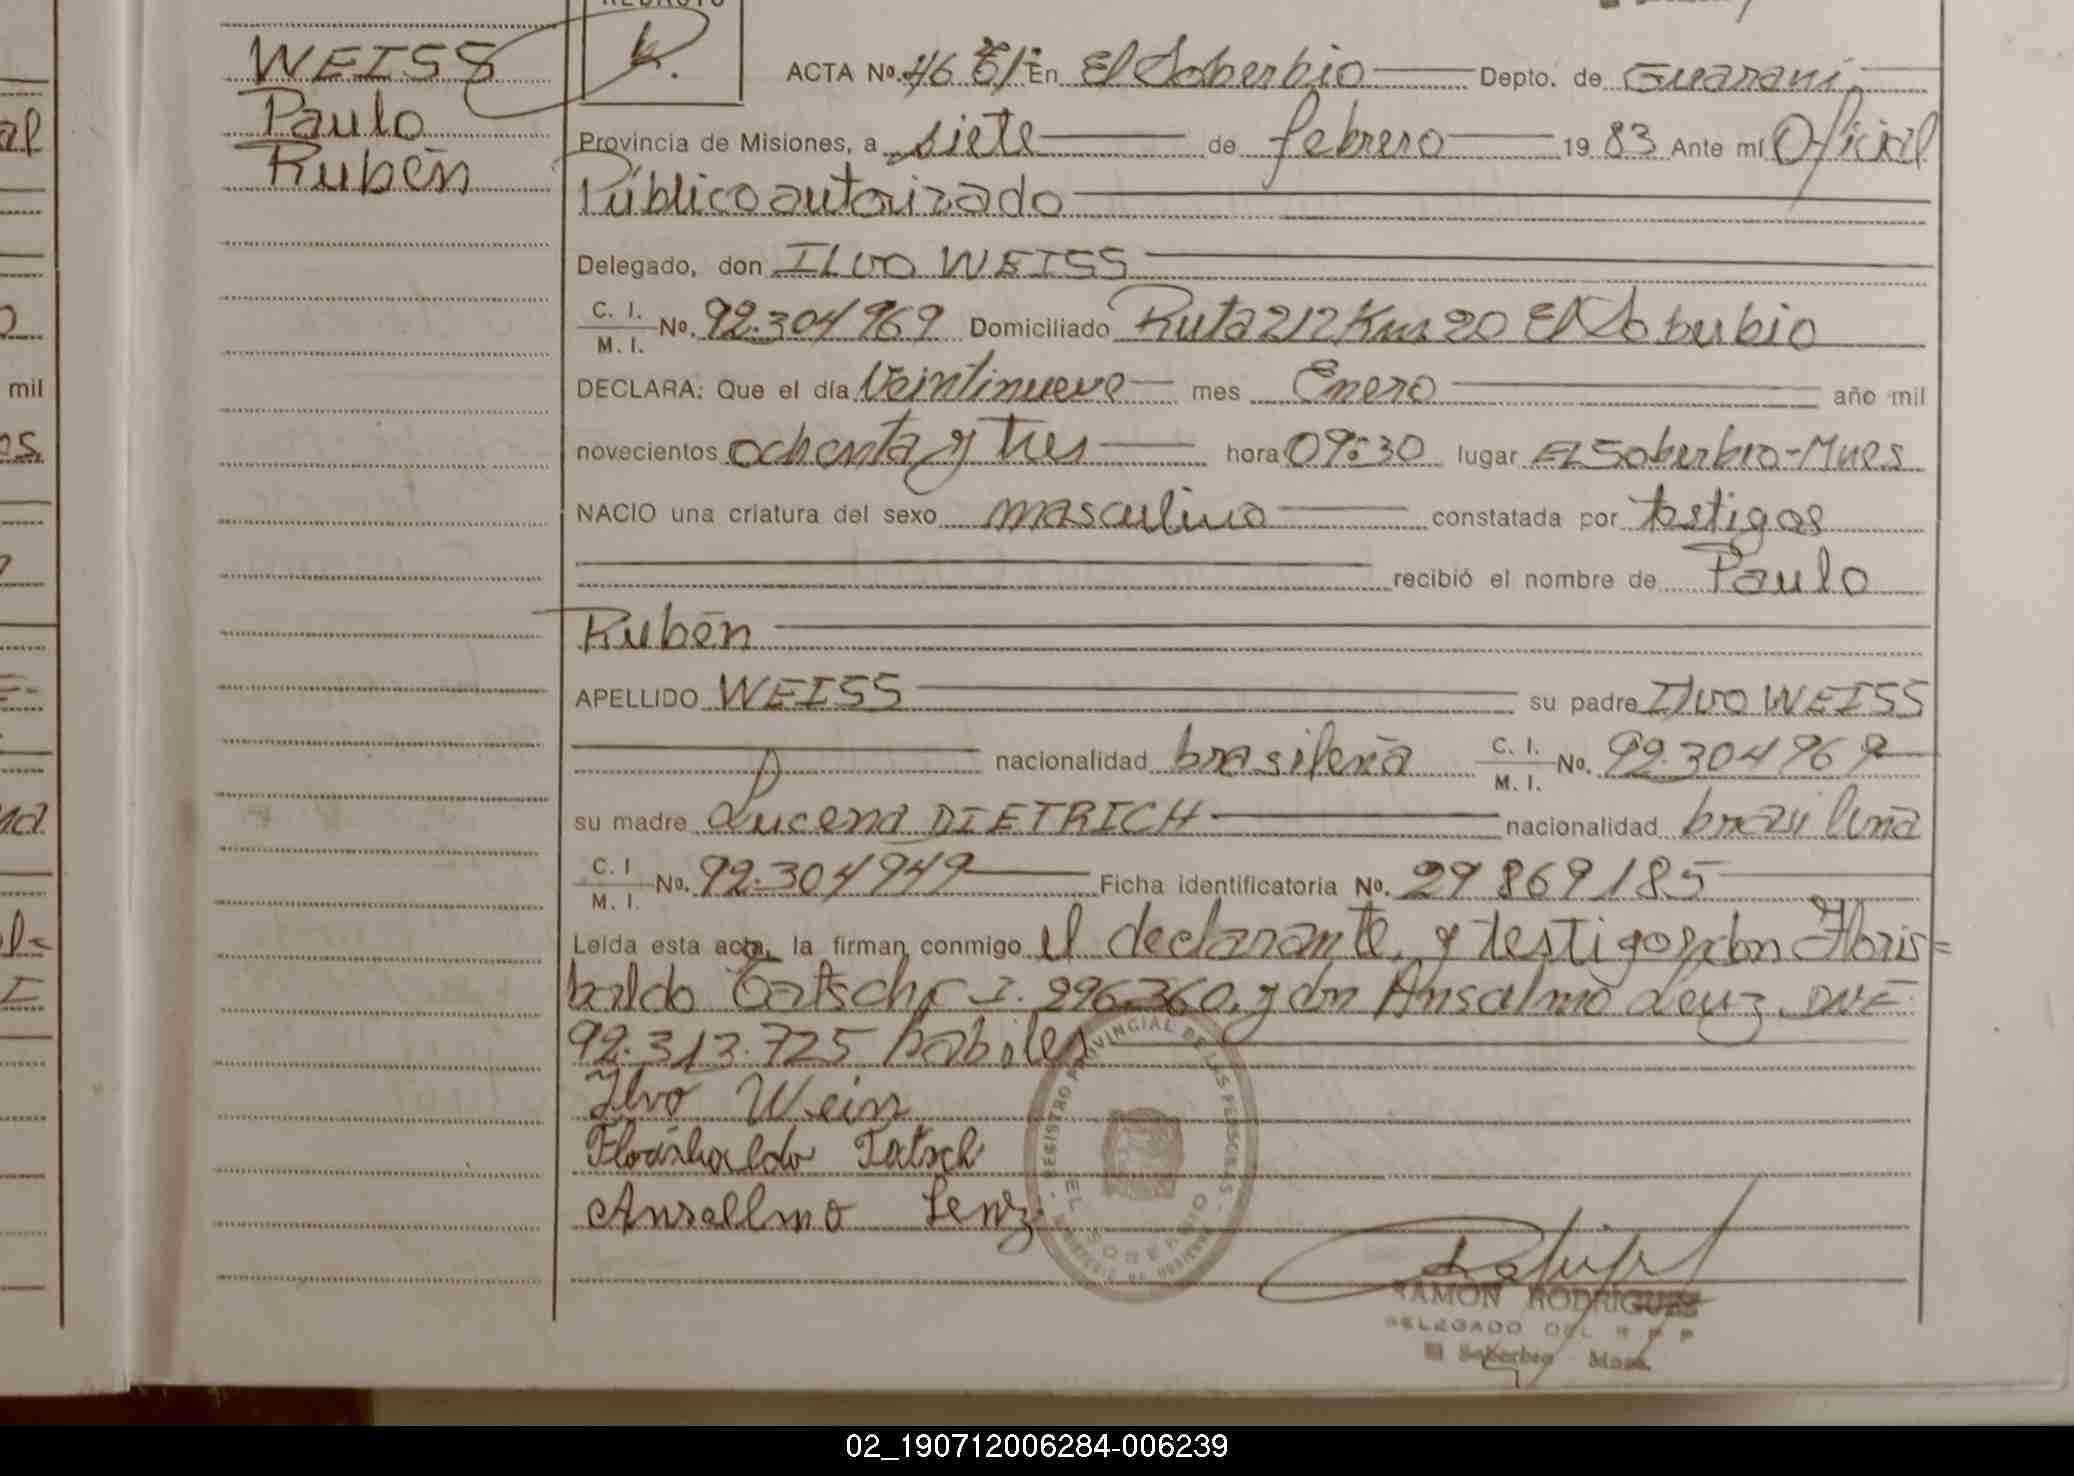 WEISS
Paulo
Rubén
ACTA No. 46 En El Soberbio Depto. de Guaraní
Provincia de Misiones, a siete de febrero 1983 Ante mí Oficial
Público autorizado
Delegado, don ILVO WEISS
C. I. M. I. No. 92.304969 Domiciliado Ruta 212 Km 20 El Soberbio
DECLARA: Que el día Veintinueve mes Enero año mil
novecientos ochenta y tres hora 09:30 lugar El Soberbio-Mnes
NACIO una criatura del sexo masculino constatada por testigos
recibió el nombre de Paulo
Rubén
APELLIDO WEISS su padre Ilvo WEISS
nacionalidad brasileña C. I. M. I. No. 92.304969
su madre Lucena DIETRICH nacionalidad brazileña
C. I M. I. No. 92.304949 Ficha identificatoria No. 29869185
Leída esta acta, la firman conmigo el declarante, y testigos don Floris=
baldo Tatsch C I. 296.360, y don Anselmo Lenz DNI
92.313.725 habiles
Ilvo Weiss
Florisbaldo Tatsch
Anselmo Lenz
REGISTRO PROVINCIAL DE LAS PERSONAS
EL SOBERBIO
RAMON RODRIGUES
DELEGADO DEL R P P
El Soberbio Mnes.
02_190712006284-006239